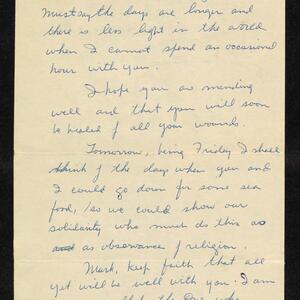 Must say the days are longer and
there is less light in the world
when I cannot spend an occasional
hour with you.
I hope you are mending
well and that you will soon
be healed of all your wounds.
Tomorrow, being Friday I shall
think of the days when you and
I could go down for some sea
food, so we could show our
solidarity who must do this as
as observance of religion.
Mark, keep faith that all
yet will be well with you. I am